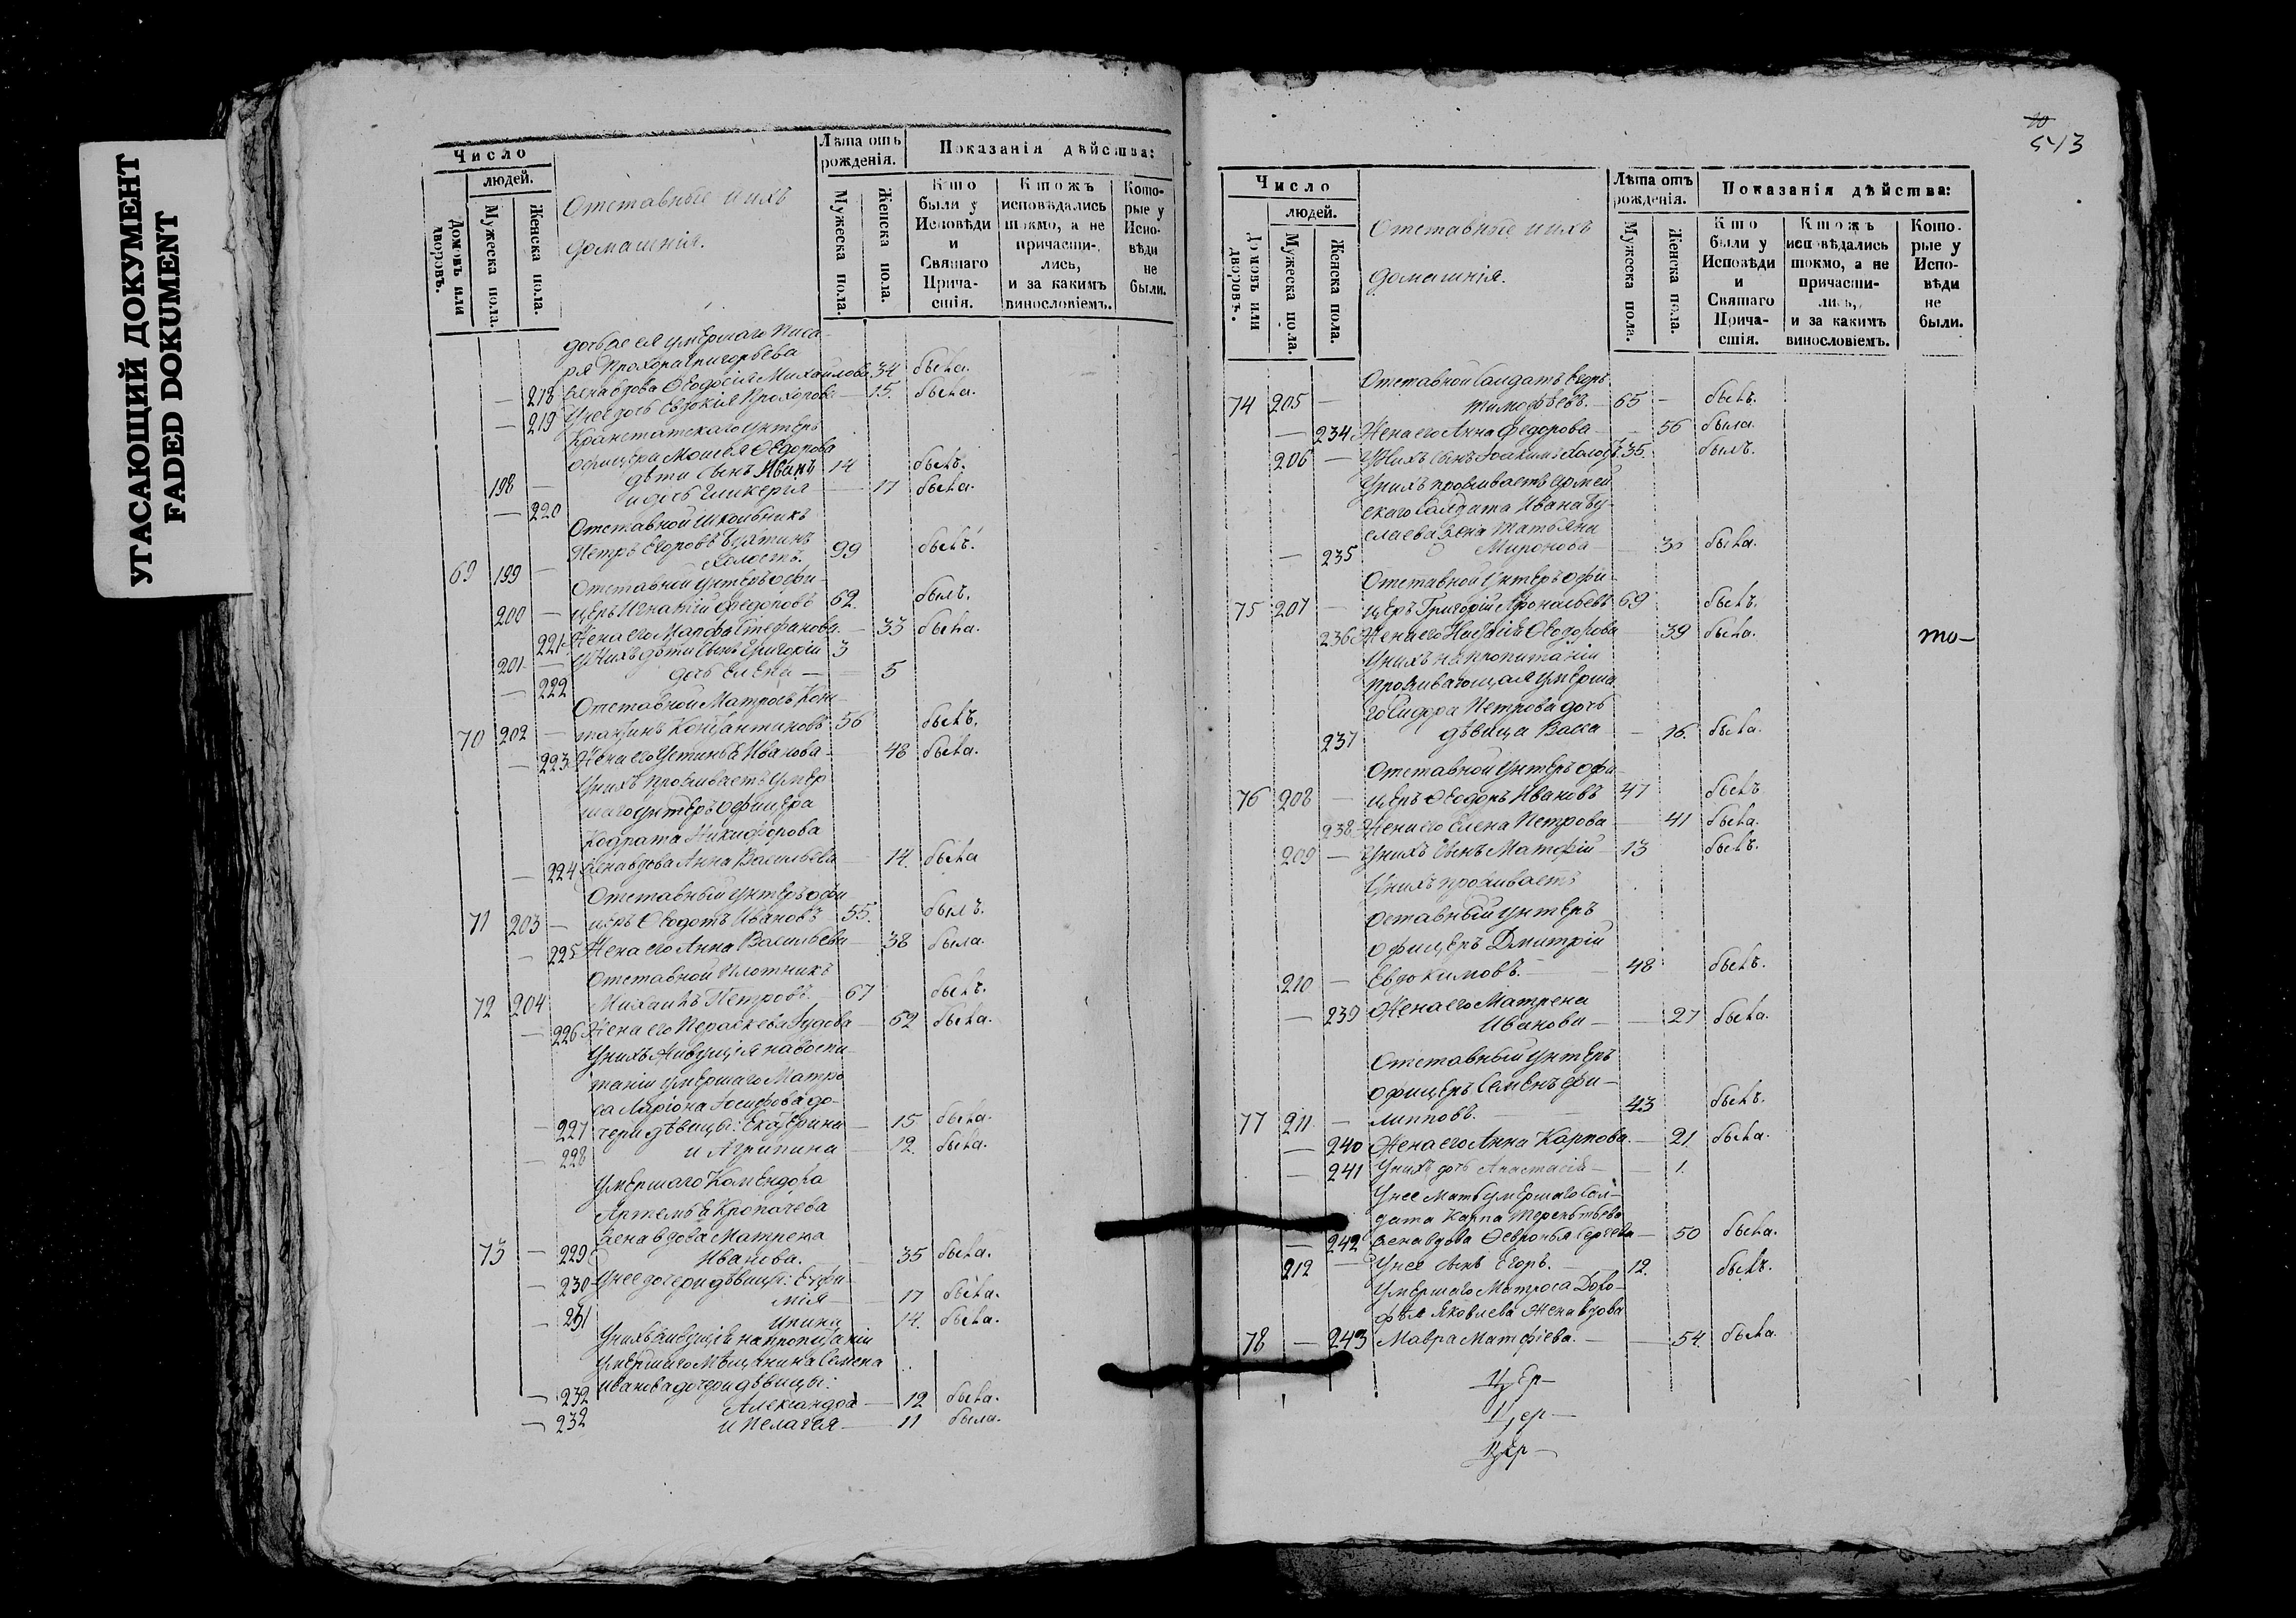 УГАСАЮЩИЙ ДОКУМЕНТ
FADED DOKUMENT
Число
людей.
Домовъ или дворовъ.
Мужеска пола.
Женска пола.
Отставные и ихъ
домашнія.
Лѣта отъ рожденія.
Мужеска пола.
Женска пола.
Показанія дѣйства:
Кто были у Исповѣди и Святаго Прича-стія.
Ктожъ исповѣдались токмо, а не причасти-лись, и за какимъ винословіемъ.
Кото-рые у Испо-вѣди не были.
умершаго Писа-
ря Прохора Григорьева
— 218 жена вдова Ѳеодосія Михайлова 34 была.
— 219 У нее дочь Евдокія Прохорова — 15. была.
Кранстатскаго унтеръ
офицера Моисея Ѳеодорова
198 — дѣти сынъ Иванъ 14 былъ.
— 220 и дочь Гликерія — 17 была.
Отставной
Петръ Егоровъ
69 199 — холостъ. 99 былъ.
Отставной унтеръ офи-
200 — церъ Игнатій Ѳедоровъ 62. былъ.
221 Жена его Марфа Стефанова — 33 была.
201 — У нихъ дѣти сынъ Григорій 3
— 222 дочь Елена — 5
Отставной Матросъ Кон-
70 202 — стантинъ Константиновъ 56 былъ.
— 223 Жена его Устинья Иванова — 48 была.
У нихъ проживаетъ умер
шаго унтеръ офицера
Кодрата Никифорова
— 224 жена вдова Анна Васильева — 14. была
Отставный унтеръ офи
71 203 — церъ Ѳеодотъ Ивановъ 55. былъ.
— 225 Жена его Анна Васильева — 38 была.
Отставной Плотникъ
72 204 Михаилъ Петровъ. — 67 былъ.
— 226 Жена его Параскева — 62 была.
У нихъ живущія на воспи
таніи умершаго Матро
са Ларіона Іосифова до-
— 227 чери дѣвицы: Екатерина — 15 была.
— 228 и Агрипина — 12. была.
Умершаго Командора
Артемья Кропачева
жена вдова Матрена
73 — 229 Иванова. — 35 была.
— 230 У нее дочери дѣвицы: Евфи-
мія — 17 была.
— 231 Ирина 14. была.
У нихъ живущія на пропитаніи
умершаго Мѣщанина Семена
Иванова дочери дѣвицы:
— 232 Александра — 12 была.
— 232 и Пелагея — 11 была.
543
Число
людей.
Домовъ или дворовъ.
Мужеска пола.
Женска пола.
Отставные и ихъ
домашнія.
Лѣта отъ рожденія.
Мужеска пола.
Женска пола.
Показанія дѣйства:
Кто были у Исповѣди и Святаго Прича-стія.
Ктожъ исповѣдались токмо, а не причасти-лись, и за какимъ винословіемъ.
Кото-рые у Испо-вѣди не были.
Отставной Солдатъ
74 205 — Тимофѣевъ. — 65 — былъ.
— 234 Жена его Анна Федорова — 56 была
206 — У нихъ сынъ Іоакимъ холостъ 35. былъ.
У нихъ проживаетъ армей
скаго Солдата Ивана
жена Татьяна
— 235 Миронова — была.
Отставной Унтеръ офи-
75 207 — церъ Григорій Афонасьевъ 69 былъ.
236 Жена его Ѳеодорова — 39 была. то—
У нихъ на пропитаніи
проживающая умерша
го Сидора Петрова дочь
237 дѣвица Васса — 16. была.
Отставной Унтеръ офи-
76 208 — церъ Ѳеодоръ Ивановъ 47 былъ
238 Жена его Елена Петрова — 41 была.
209 — У нихъ сынъ Матфій — 13 былъ.
У нихъ проживаетъ
Оставный унтеръ
офицеръ Дмитрій
210 — Евдокимовъ. — 48 былъ.
— 239 Жена его Матрена
Иванова — 27 была.
Отставный унтеръ
офицеръ Семенъ Фи-
77 211 — липповъ. 43 былъ.
— 240 Жена его Анна Карпова. — 21. была.
— 241 У нихъ дочь Анастасія — 1.
У нее мать умершаго Сол-
дата Карпа Терентьева
— 242 жена вдова Ѳевронья Сергѣева — 50 была.
212 — У нее сынъ Егоръ. — 12. былъ.
Умершаго Матроса Доро-
фѣя Яковлева жена вдова
78 — 243 Мавра Матфіева. — 54. была
Цер—
Цер—
Цер—